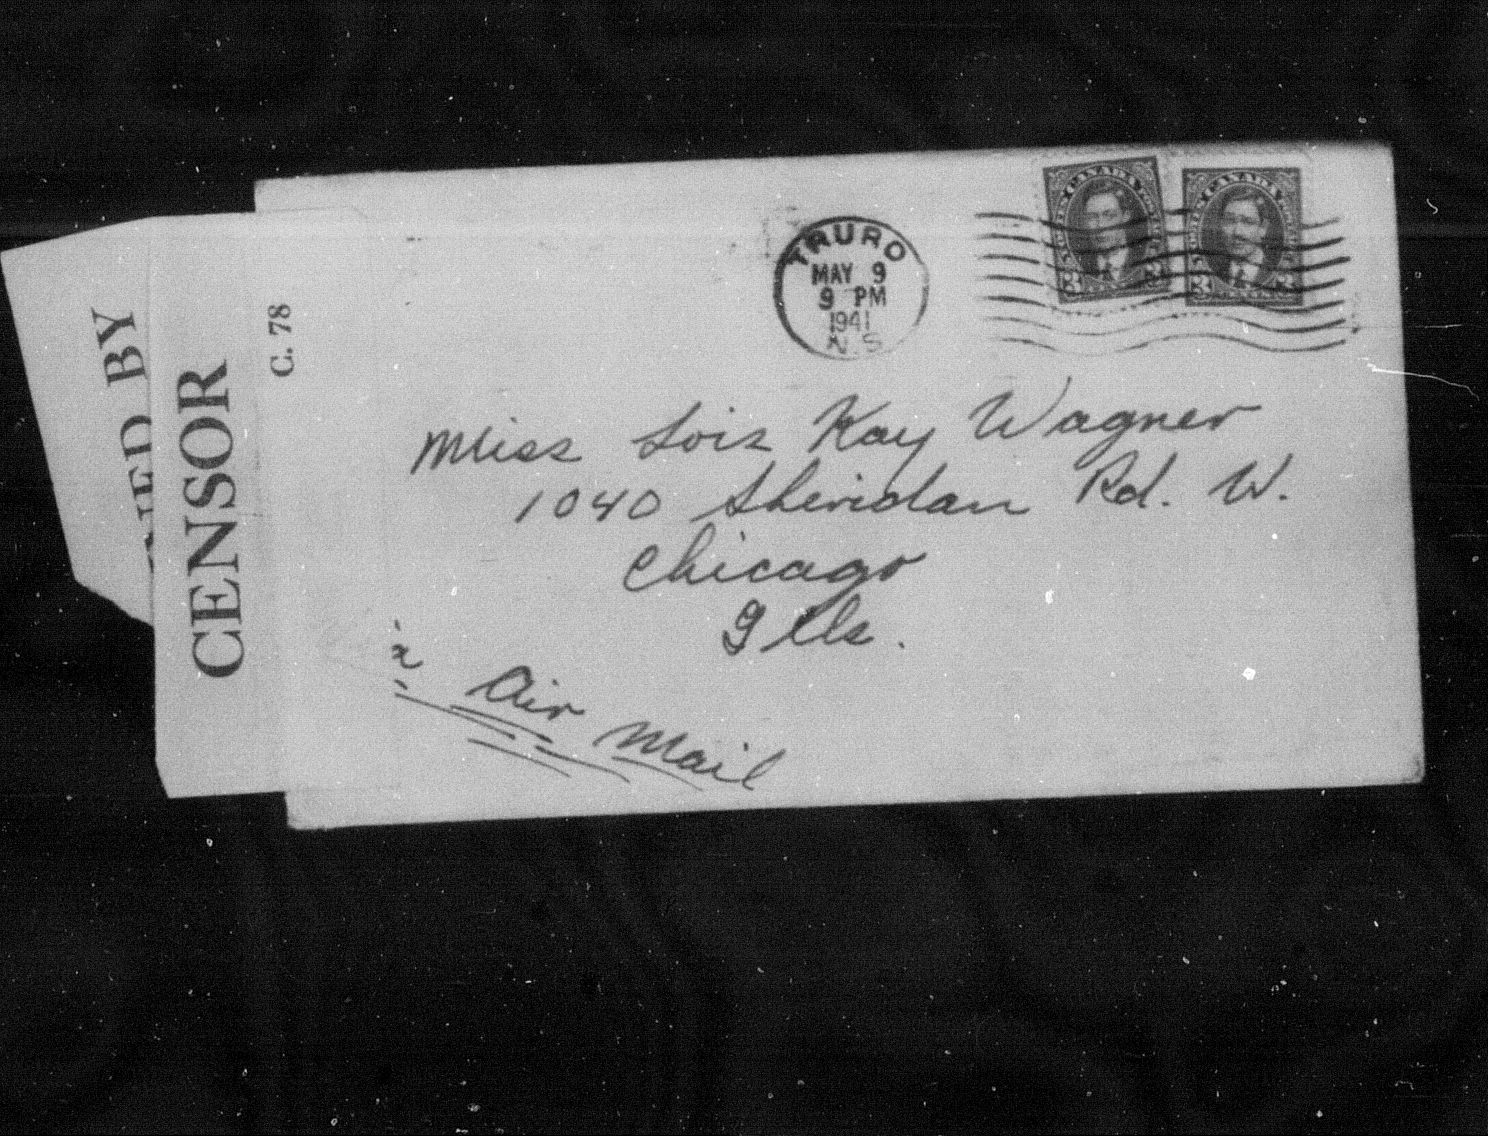 CANADA
CANADA
TRURO
MAY 9
9 PM
1941
N.S
BY
CENSOR
C. 78
Miss Lois Kay Wagner
1040 Sheridan Rd. W.
Chicago
Ills.
Air Mail